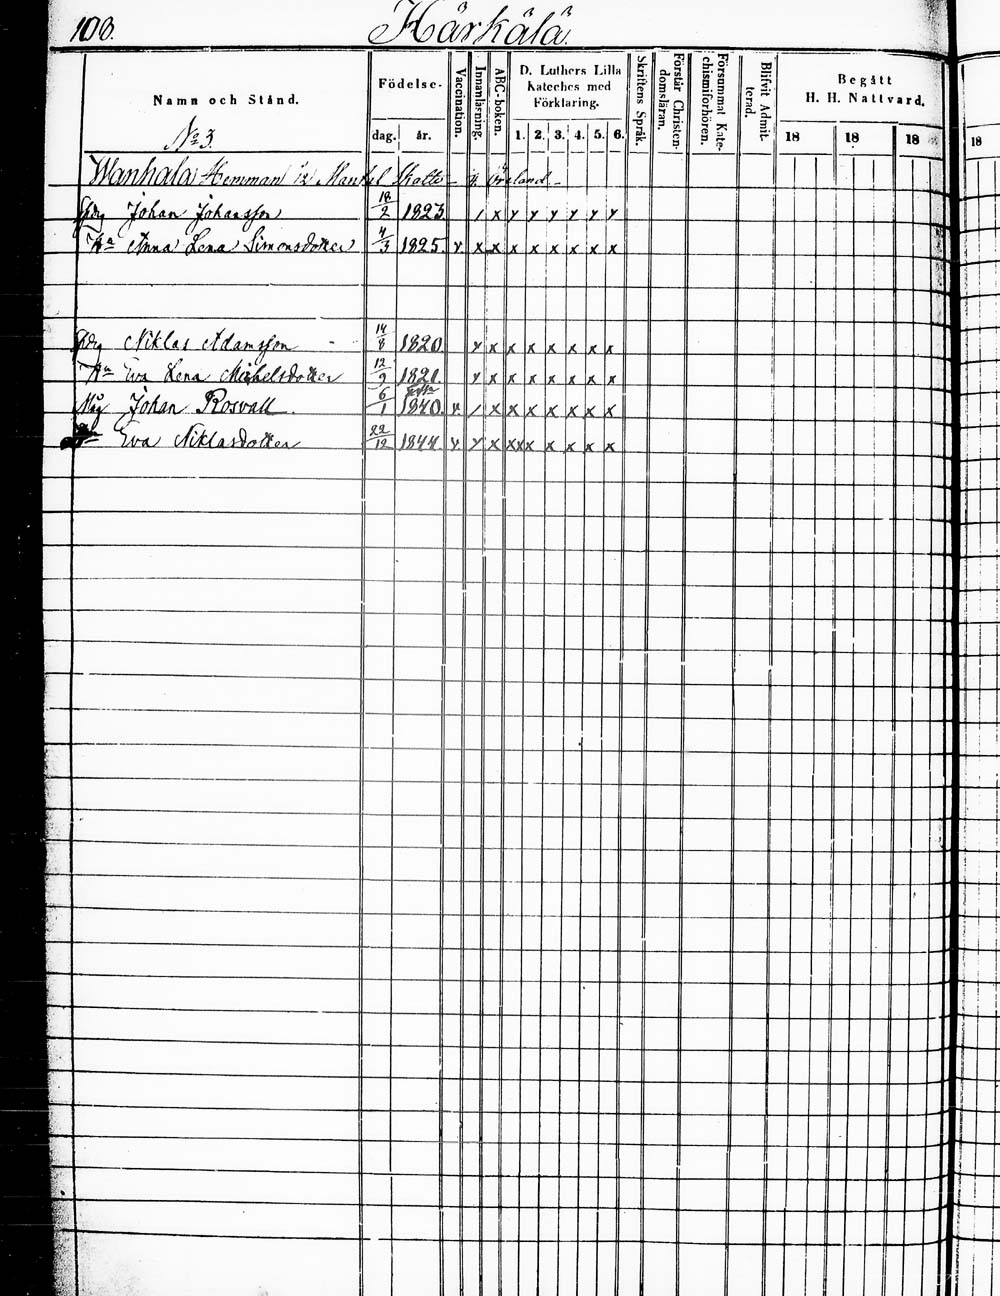 108.
Härkälä.
Namn och Stånd.
Födelse-
dag.
år.
Vaccination.
Innanläsning.
ABC-boken.
D. Luthers Lilla
Kateches med
Förklaring.
1. 2. 3. 4. 5. 6.
Skriftens Språk.
Förstår Christen-
domsläran.
Försummat Kate-
chismiförhören.
Blifvit Admit-
terad.
Begått
H. H. Nattvard.
18 18 18
18
No 3.
Wanhala Hemman 1/2 Mantal Skatte
Johan Johansson 18/2 1823 / x y y y y y y
Hu Anna Lena Simonsdotter 4/3 1825. v. x x x x x x x x
Niklas Adamsson 14/8 1820 y x x x x x x x
Hu Eva Lena Michelsdotter 12/9 1821. y x x x x x x x
Måg Johan Rosvall 6/1 1840. v. / x x x x x x x
Eva Niklasdotter 22/12 1844. v. y x xxx x x x x